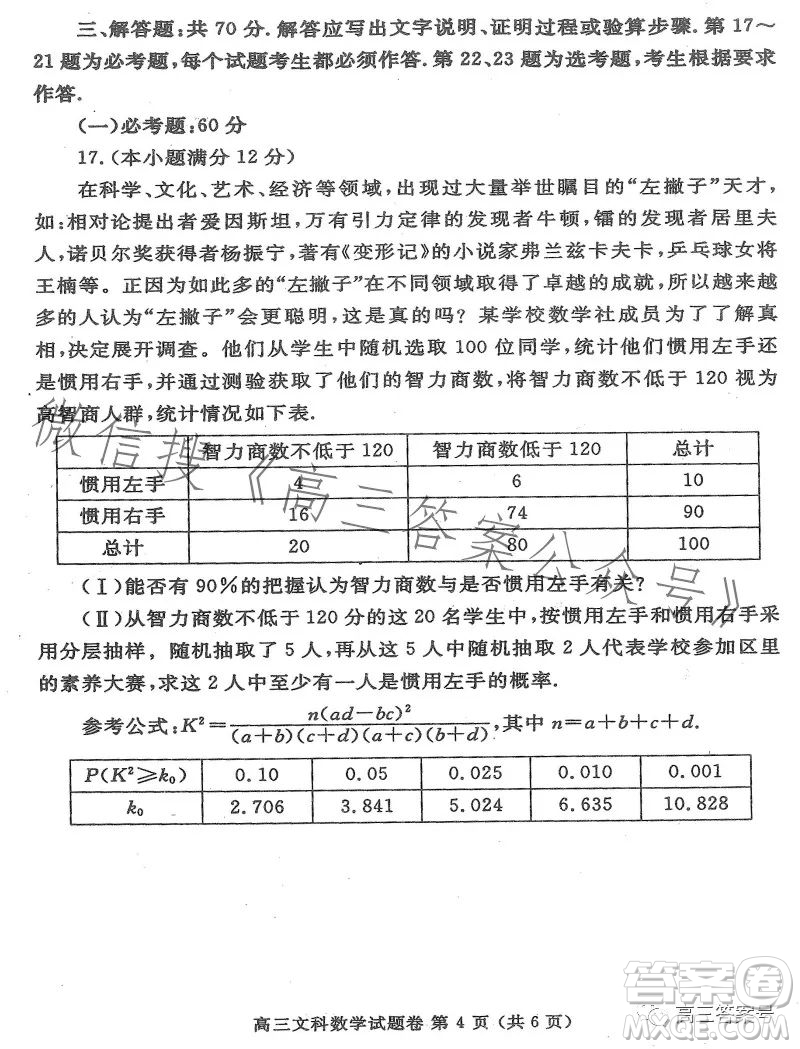 三、解答题:共 70 分.解答应写出文字说明、证明过程或验算步骤.第 17～
21 题为必考题,每个试题考生都必须作答.第 22、23 题为选考题,考生根据要求
作答.
(一)必考题:60 分
17.(本小题满分 12 分)
在科学、文化、艺术、经济等领域,出现过大量举世瞩目的“左撇子”天才,
如:相对论提出者爱因斯坦,万有引力定律的发现者牛顿,镭的发现者居里夫
人,诺贝尔奖获得者杨振宁,著有《变形记》的小说家弗兰兹卡夫卡,乒乓球女将
王楠等。正因为如此多的“左撇子”在不同领域取得了卓越的成就,所以越来越
多的人认为“左撇子”会更聪明,这是真的吗？某学校数学社成员为了了解真
相,决定展开调查。他们从学生中随机选取 100 位同学,统计他们惯用左手还
是惯用右手,并通过测验获取了他们的智力商数,将智力商数不低于 120 视为
高智商人群,统计情况如下表.
智力商数不低于 120 智力商数低于 120 总计
惯用左手 4 6 10
惯用右手 16 74 90
总计 20 80 100
(Ⅰ)能否有 90%的把握认为智力商数与是否惯用左手有关?
(Ⅱ)从智力商数不低于 120 分的这 20 名学生中,按惯用左手和惯用右手采
用分层抽样,随机抽取了 5 人,再从这 5 人中随机抽取 2 人代表学校参加区里
的素养大赛,求这 2 人中至少有一人是惯用左手的概率.
参考公式:K²=n(ad−bc)²/(a+b)(c+d)(a+c)(b+d),其中 n=a+b+c+d.
P(K²≥k₀) 0.10 0.05 0.025 0.010 0.001
k₀ 2.706 3.841 5.024 6.635 10.828
高三文科数学试题卷 第 4 页 (共 6 页)
微信搜《高三答案公众号》
答案卷
MXQE.COM
高三答案号